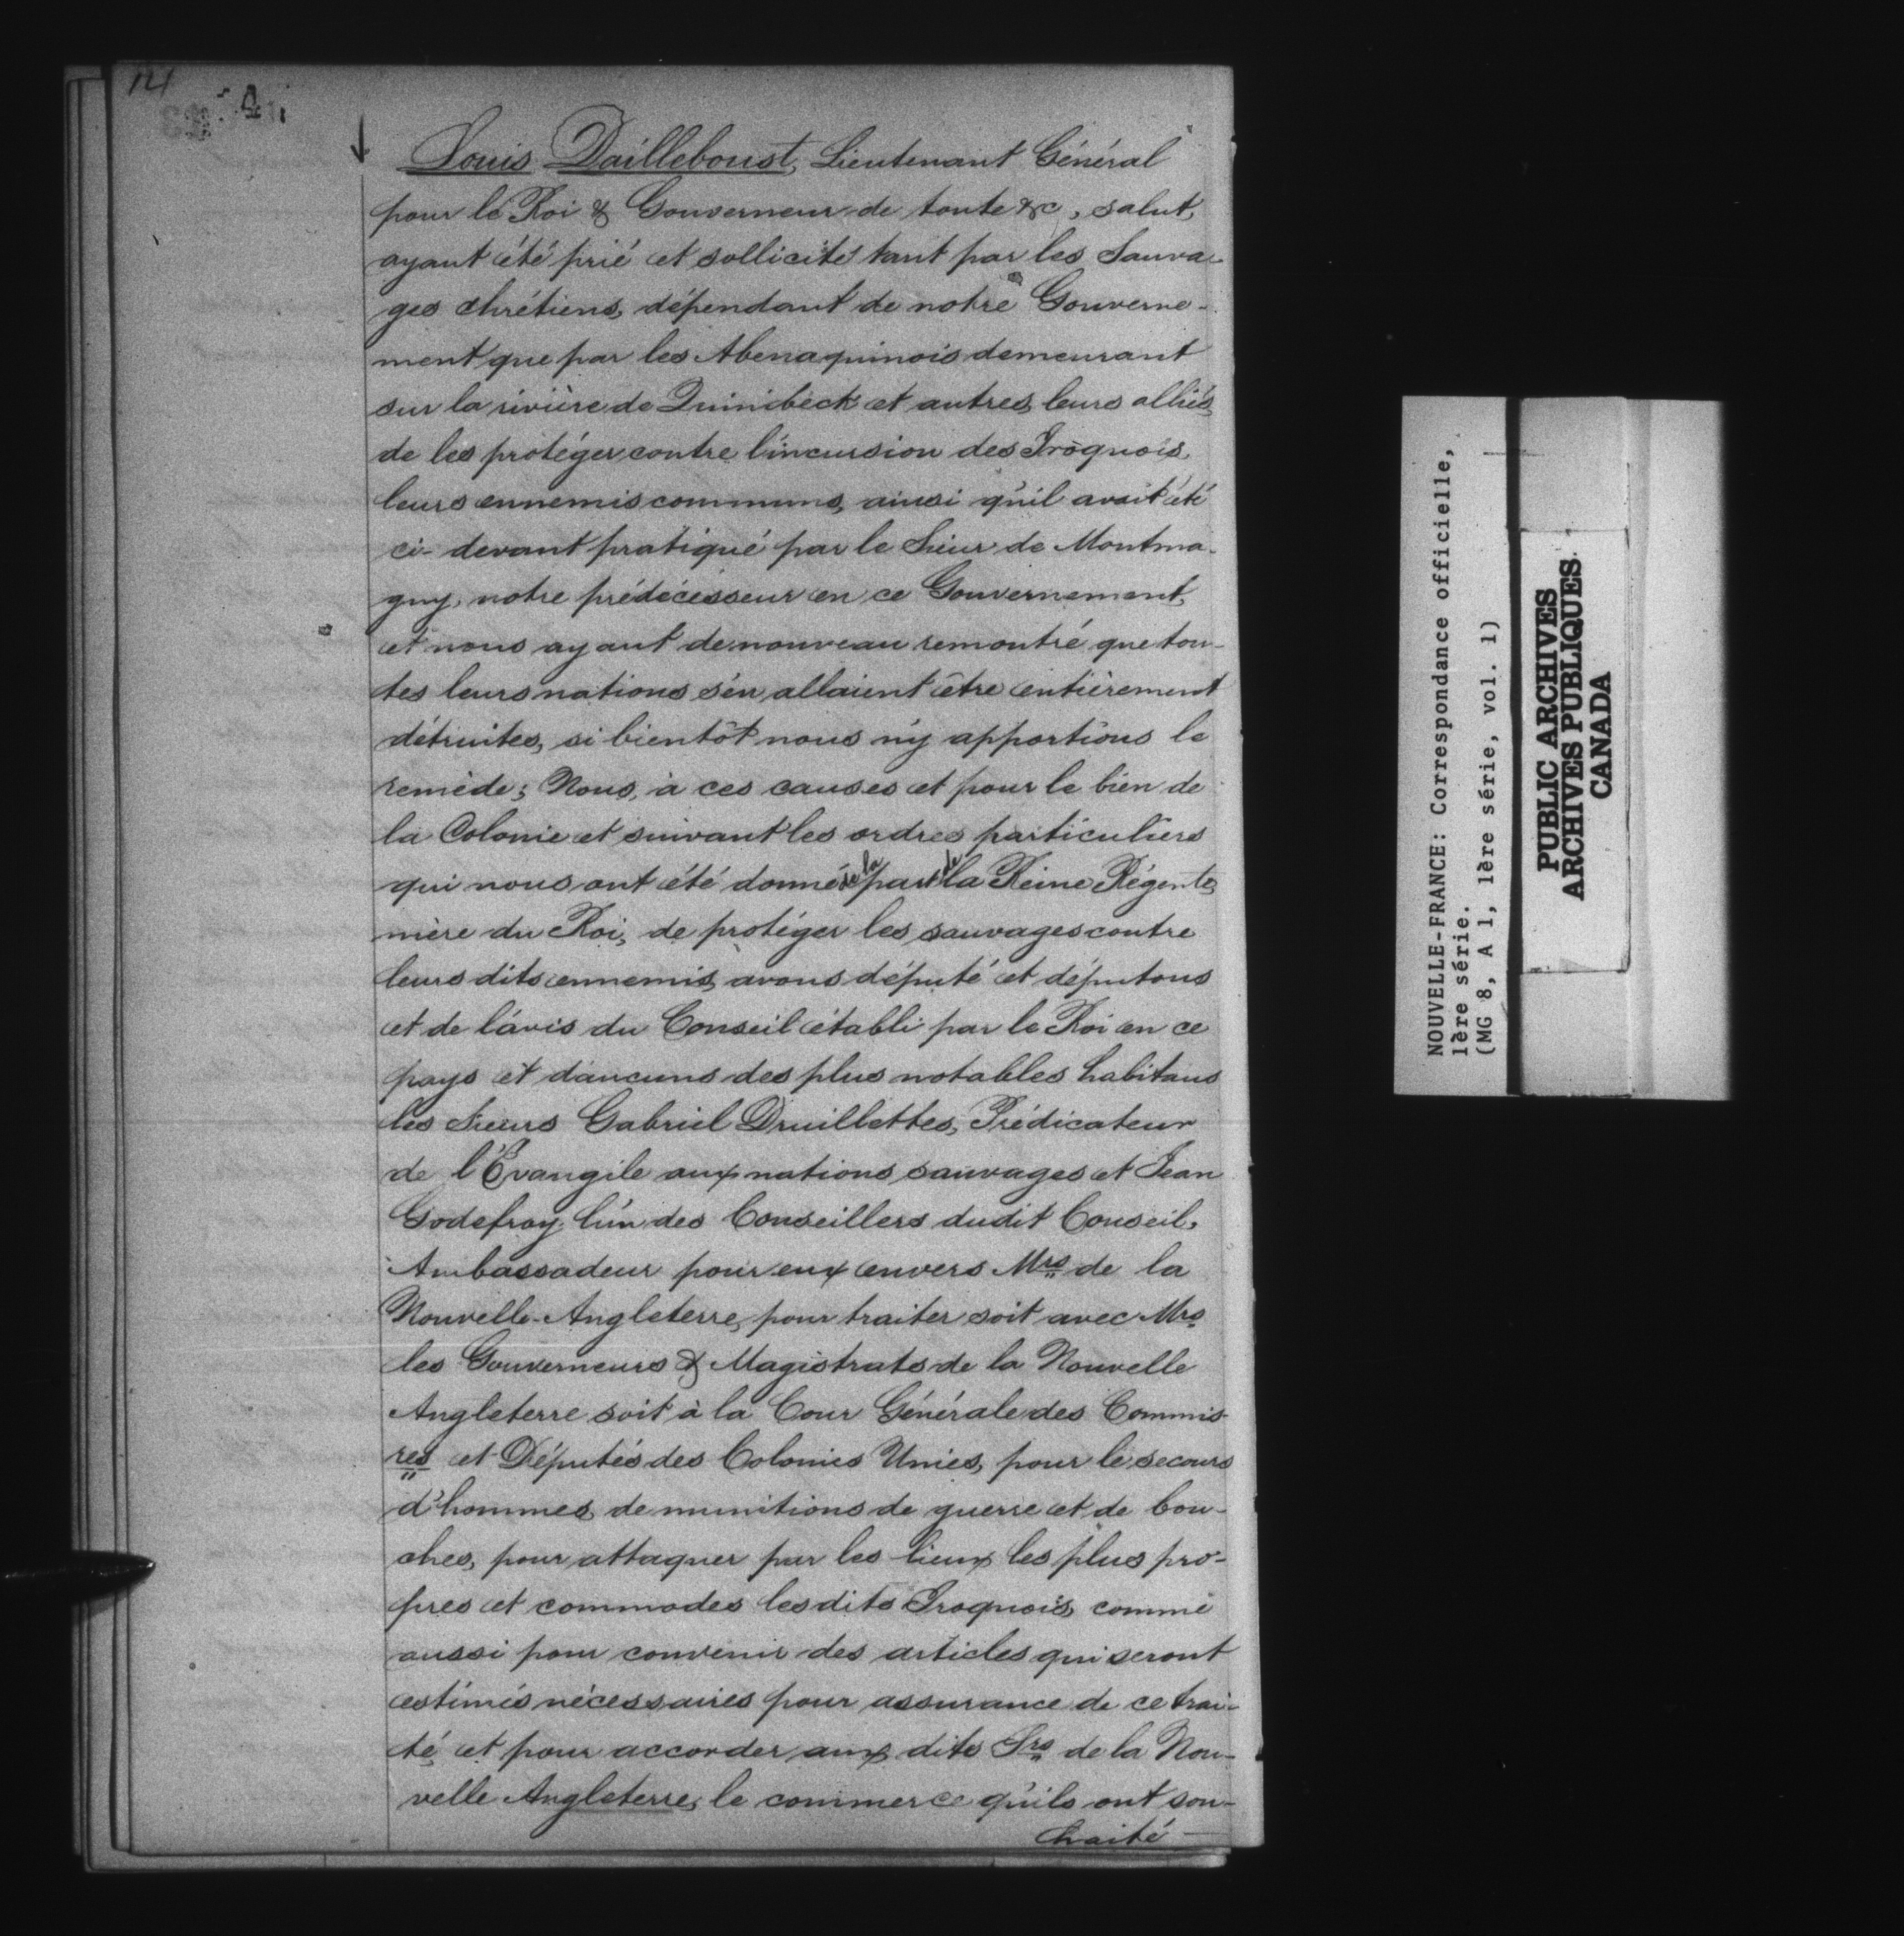 121
Louis Dailleboust, Lieutenant Général
pour le Roi & Gouverneur de toute &c, salut,
ayant été prié et sollicité tant par les Sauva-
ges chrétiens, dépendant de notre Gouverne-
ment que par les Abenaquinois demeurant
sur la rivière de Quinibeck et autres, leurs alliés,
de les protéger contre l'incursion des Iroquois,
leurs ennemis communs, ainsi qu'il avait été
ci-devant pratiqué par le Sieur de Montma-
gny, notre prédécesseur en ce Gouvernement,
et nous ayant de nouveau remontré que tou-
tes leurs nations s'en allaient être entièrement
détruites, si bientôt nous n'y apportions le
remède; Nous, à ces causes et pour le bien de
la Colonie et suivant les ordres particuliers
qui nous ont été donnés de la part de la Reine Régente,
mère du Roi, de protéger les sauvages contre
leurs dits ennemis, avons député et députons
et de l'avis du Conseil établi par le Roi en ce
pays et d'aucuns des plus notables habitans
les Sieurs Gabriel Druillettes, Prédicateur
de l'Évangile aux nations sauvages et Jean
Godefroy, l'un des Conseillers dudit Conseil,
Ambassadeur pour eux envers Mrs de la
Nouvelle-Angleterre, pour traiter soit avec Mrs
les Gouverneurs & Magistrats de la Nouvelle
Angleterre soit à la Cour Générale des Commis-
res et Députés des Colonies Unies, pour le secours
d'hommes, de munitions de guerre et de bou-
ches, pour attaquer par les lieux les plus pro-
pres et commodes lesdits Iroquois, comme
aussi pour convenir des articles qui seront
estimés nécessaires pour assurance de ce trai-
té et pour accorder aux dits Srs de la Nou-
velle Angleterre, le commerce qu'ils ont sou-
haité
NOUVELLE-FRANCE: Correspondance officielle,
1ère série.
(MG 8, A 1, 1ère série, vol. 1)
PUBLIC ARCHIVES
ARCHIVES PUBLIQUES
CANADA